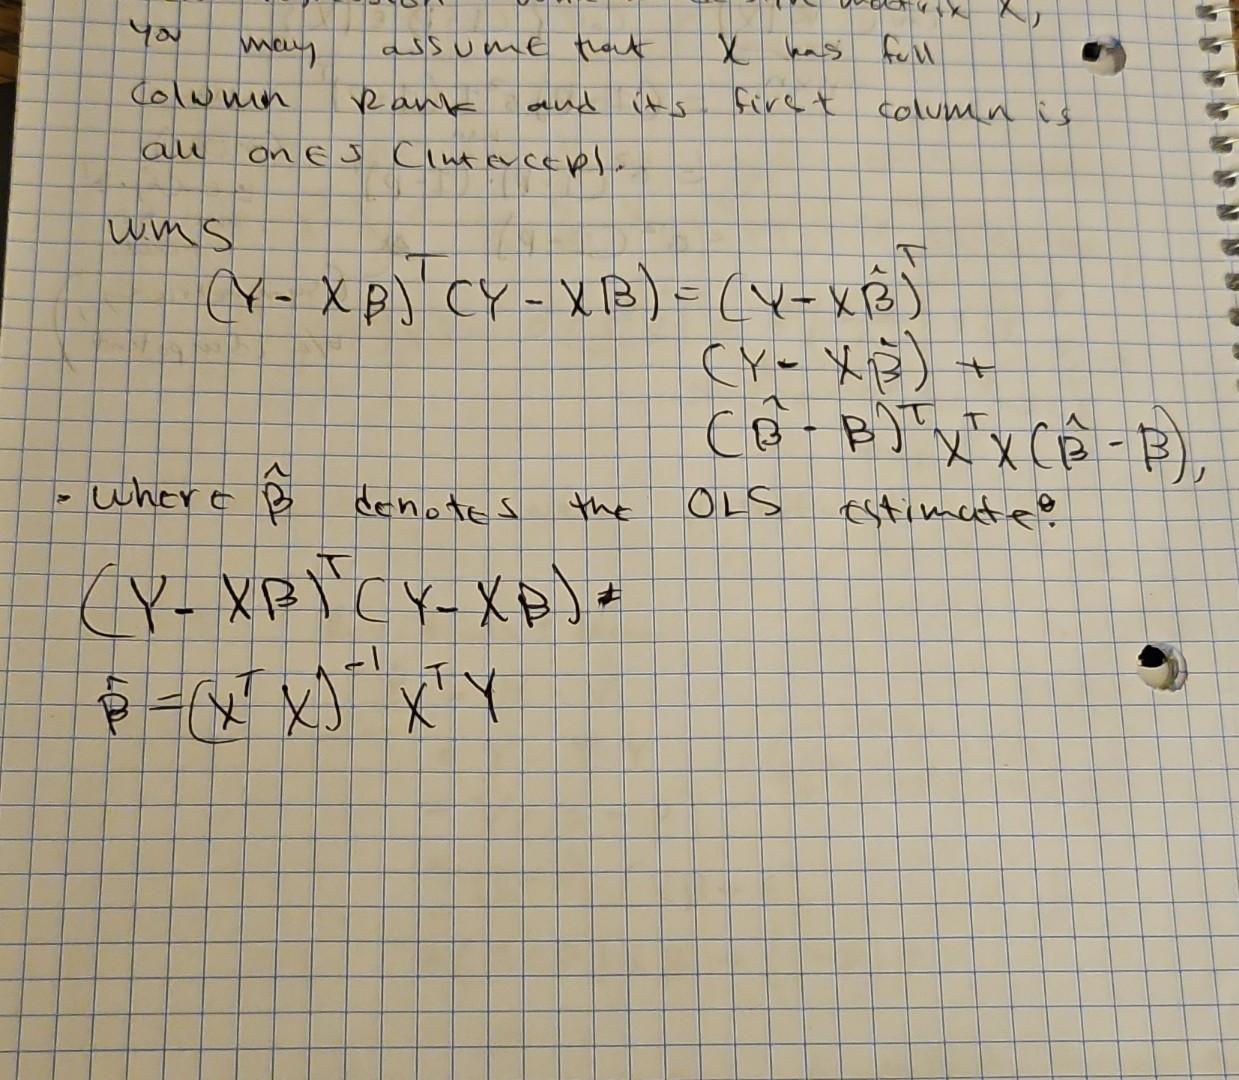 matrix X,
you may assume that X has full
column Rank and its first column is
all ones (intercept).
WMS
(Y - Xβ)ᵀ (Y - Xβ) = (Y - Xβ̂)ᵀ
(Y - Xβ̂) +
(β̂ - β)ᵀ Xᵀ X (β̂ - β),
- where β̂ denotes the OLS estimate?
(Y - Xβ)ᵀ (Y - Xβ) =
β̂ = (Xᵀ X)⁻¹ Xᵀ Y